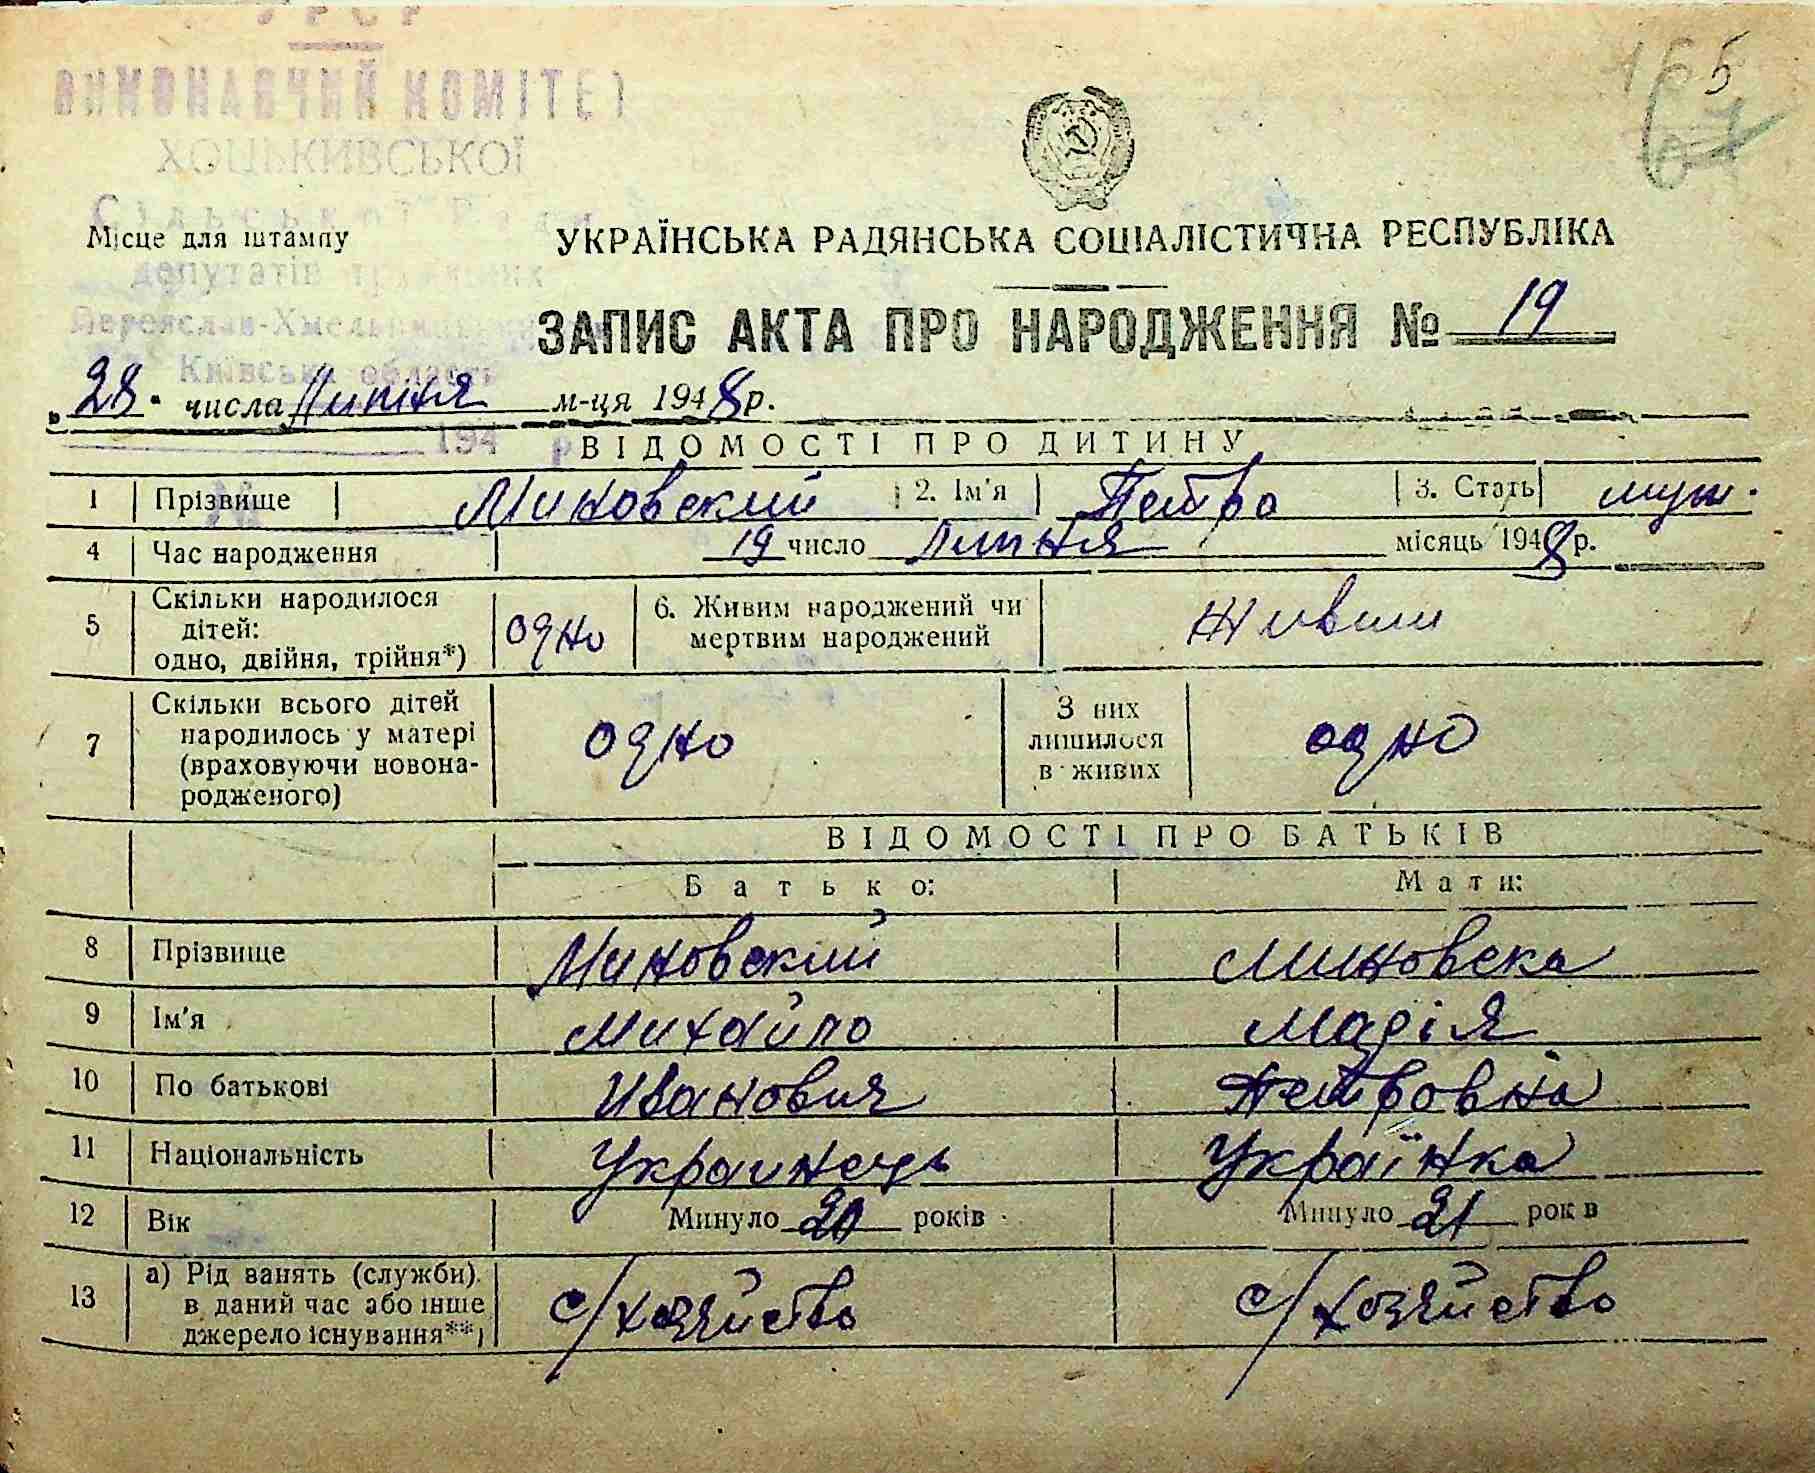 УРСР
ВИКОНАВЧИЙ КОМІТЕТ
ХОЦЬКИВСЬКОЇ
Сільської Ради
депутатів трудящих
Переяслав-Хмельницького
Київська область
194 р
165
Місце для штампу
УКРАЇНСЬКА РАДЯНСЬКА СОЦІАЛІСТИЧНА РЕСПУБЛІКА
ЗАПИС АКТА ПРО НАРОДЖЕННЯ № 19
„28" числа Липня м-ця 1948 р.
ВІДОМОСТІ ПРО ДИТИНУ
1 Прізвище Миновский 2. Ім'я Петро 3. Стать муж.
4 Час народження 19 число Липня місяць 1948 р.
5 Скільки народилося дітей: одно, двійня, трійня*) одно 6. Живим народжений чи мертвим народжений живим
7 Скільки всього дітей народилось у матері (враховуючи новонародженого) одно З них лишилося в живих одно
ВІДОМОСТІ ПРО БАТЬКІВ
Батько: Мати:
8 Прізвище Миновский Миновска
9 Ім'я Михайло Марія
10 По батькові Иванович Петровна
11 Національність Украинець Українка
12 Вік Минуло років Минуло 21 років
13 а) Рід занять (служби) в даний час або інше джерело існування**) с/хозяйство с/хозяйство